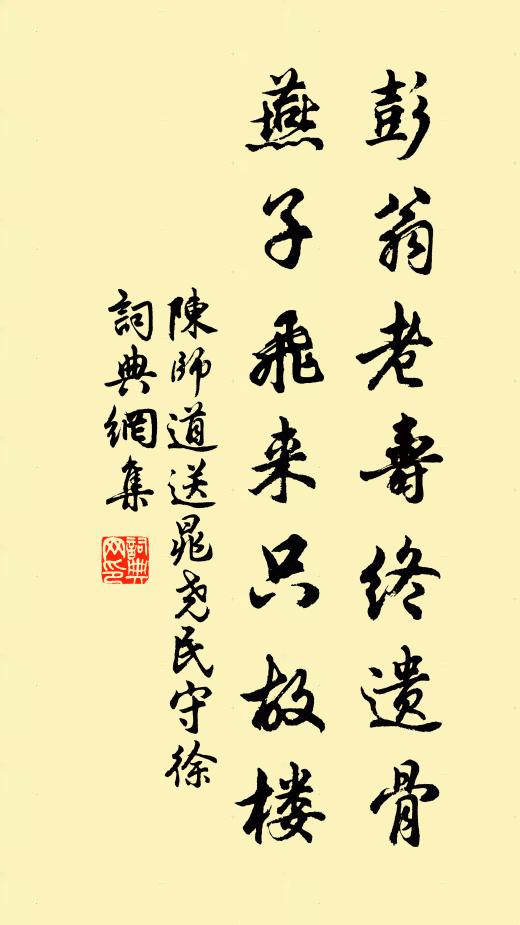 彭翁老壽终遗骨
燕子飛来只故楼
陳師道送晁尧民守徐
詞典網集
詞典网印